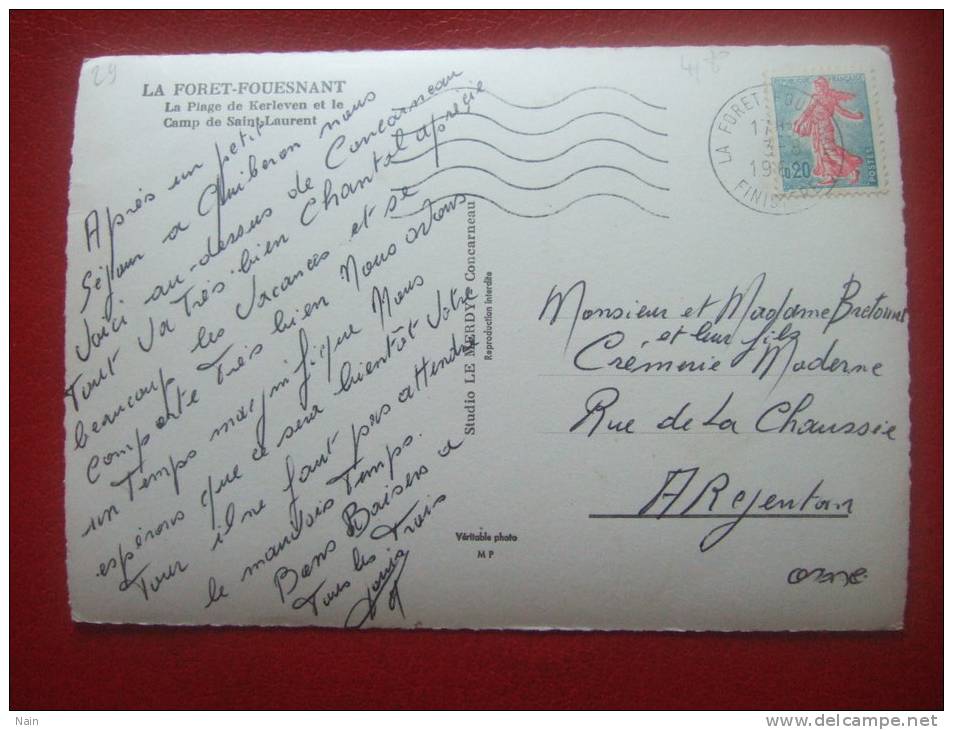 29
LA FORET-FOUESNANT
La Plage de Kerleven et le
Camp de Saint-Laurent
Après un petit
Séjour a Quiberon nous
Voici au-dessus de Concarneau
Tout Va Très bien Chantal aprécie
beaucoup les Vacances et se
Comporte Très bien Nous avons
un Temps magnifique Nous
espérons que ce sera bientôt Votre
Tour il ne faut pas attendre
le mauvais Temps.
Bons Baisers a
Tous les Trois
Studio LE MERDY - Concarneau
Reproduction interdite
Véritable photo
M P
LA FORET
FINIS
FRANÇAISE
0,20
POSTES
Monsieur et Madame
et leur fils
Crémerie Moderne
Rue de La Chaussée
ARgentan
orne
Nain
delcampe.net